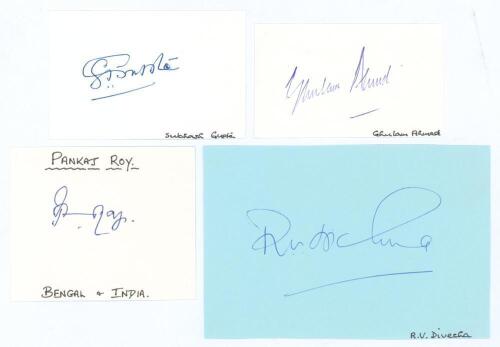 Subhash Gupte
Ghulam Ahmed
Ghulam Ahmed
PANKAJ ROY.
P. Roy.
BENGAL & INDIA.
R.V. Divecha
R.V. Divecha